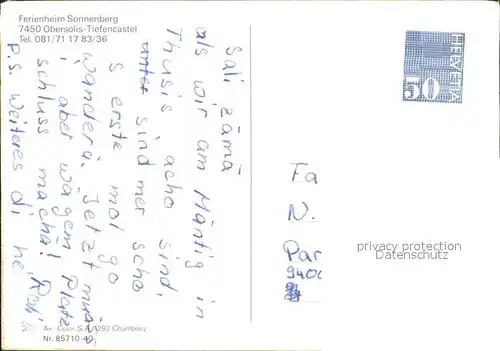 Ferienheim Sonnenberg
7450 Obersolis-Tiefencastel
Tel. 081/71 17 83/36
Sali zämä
als wir am Mäntig in
Thusis acho sind,
sind mer scho
s erste mol go
wanderä. Jetzt
i aber wägem Platz
schluss machä!
p.s. weiteres di he
HELVETIA
50
Fa
N.
Par
9400
privacy protection
Datenschutz
Air Color S.A. 1292 Chambésy
Nr. 85710-40